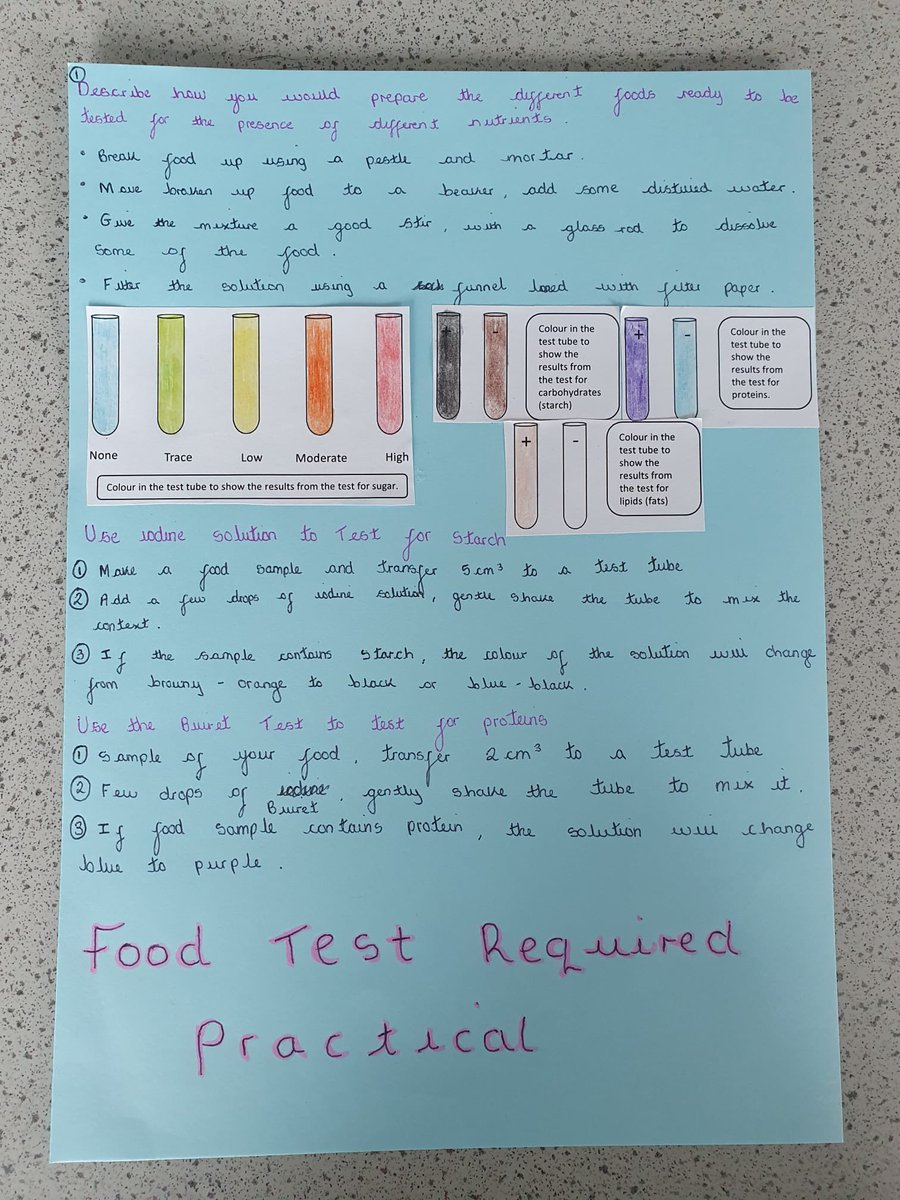 ①
Describe how you would prepare the different foods ready to be
tested for the presence of different nutrients.
• Break food up using a pestle and mortar.
• Move broken up food to a beaker, add some distilled water.
• Give the mixture a good stir, with a glass rod to dissolve
some of the food.
• Filter the solution using a funnel lined with filter paper.
None Trace Low Moderate High
Colour in the test tube to show the results from the test for sugar.
+ -
Colour in the
test tube to
show the
results from
the test for
carbohydrates
(starch)
+ -
Colour in the
test tube to
show the
results from
the test for
proteins.
+ -
Colour in the
test tube to
show the
results from
the test for
lipids (fats)
Use iodine solution to Test for starch
① Make a food sample and transfer 5cm³ to a test tube
② Add a few drops of iodine solution, gentle shake the tube to mix the
context.
③ If the sample contains starch, the colour of the solution will change
from browny - orange to black or blue-black.
Use the Biuret Test to test for proteins
① Sample of your food, transfer 2cm³ to a test tube
② Few drops of iodine Biuret, gently shake the tube to mix it.
③ If food sample contains protein, the solution will change
blue to purple.
Food Test Required
Practical